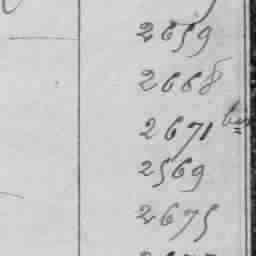 2659
2668
2671 bis
2569
2675